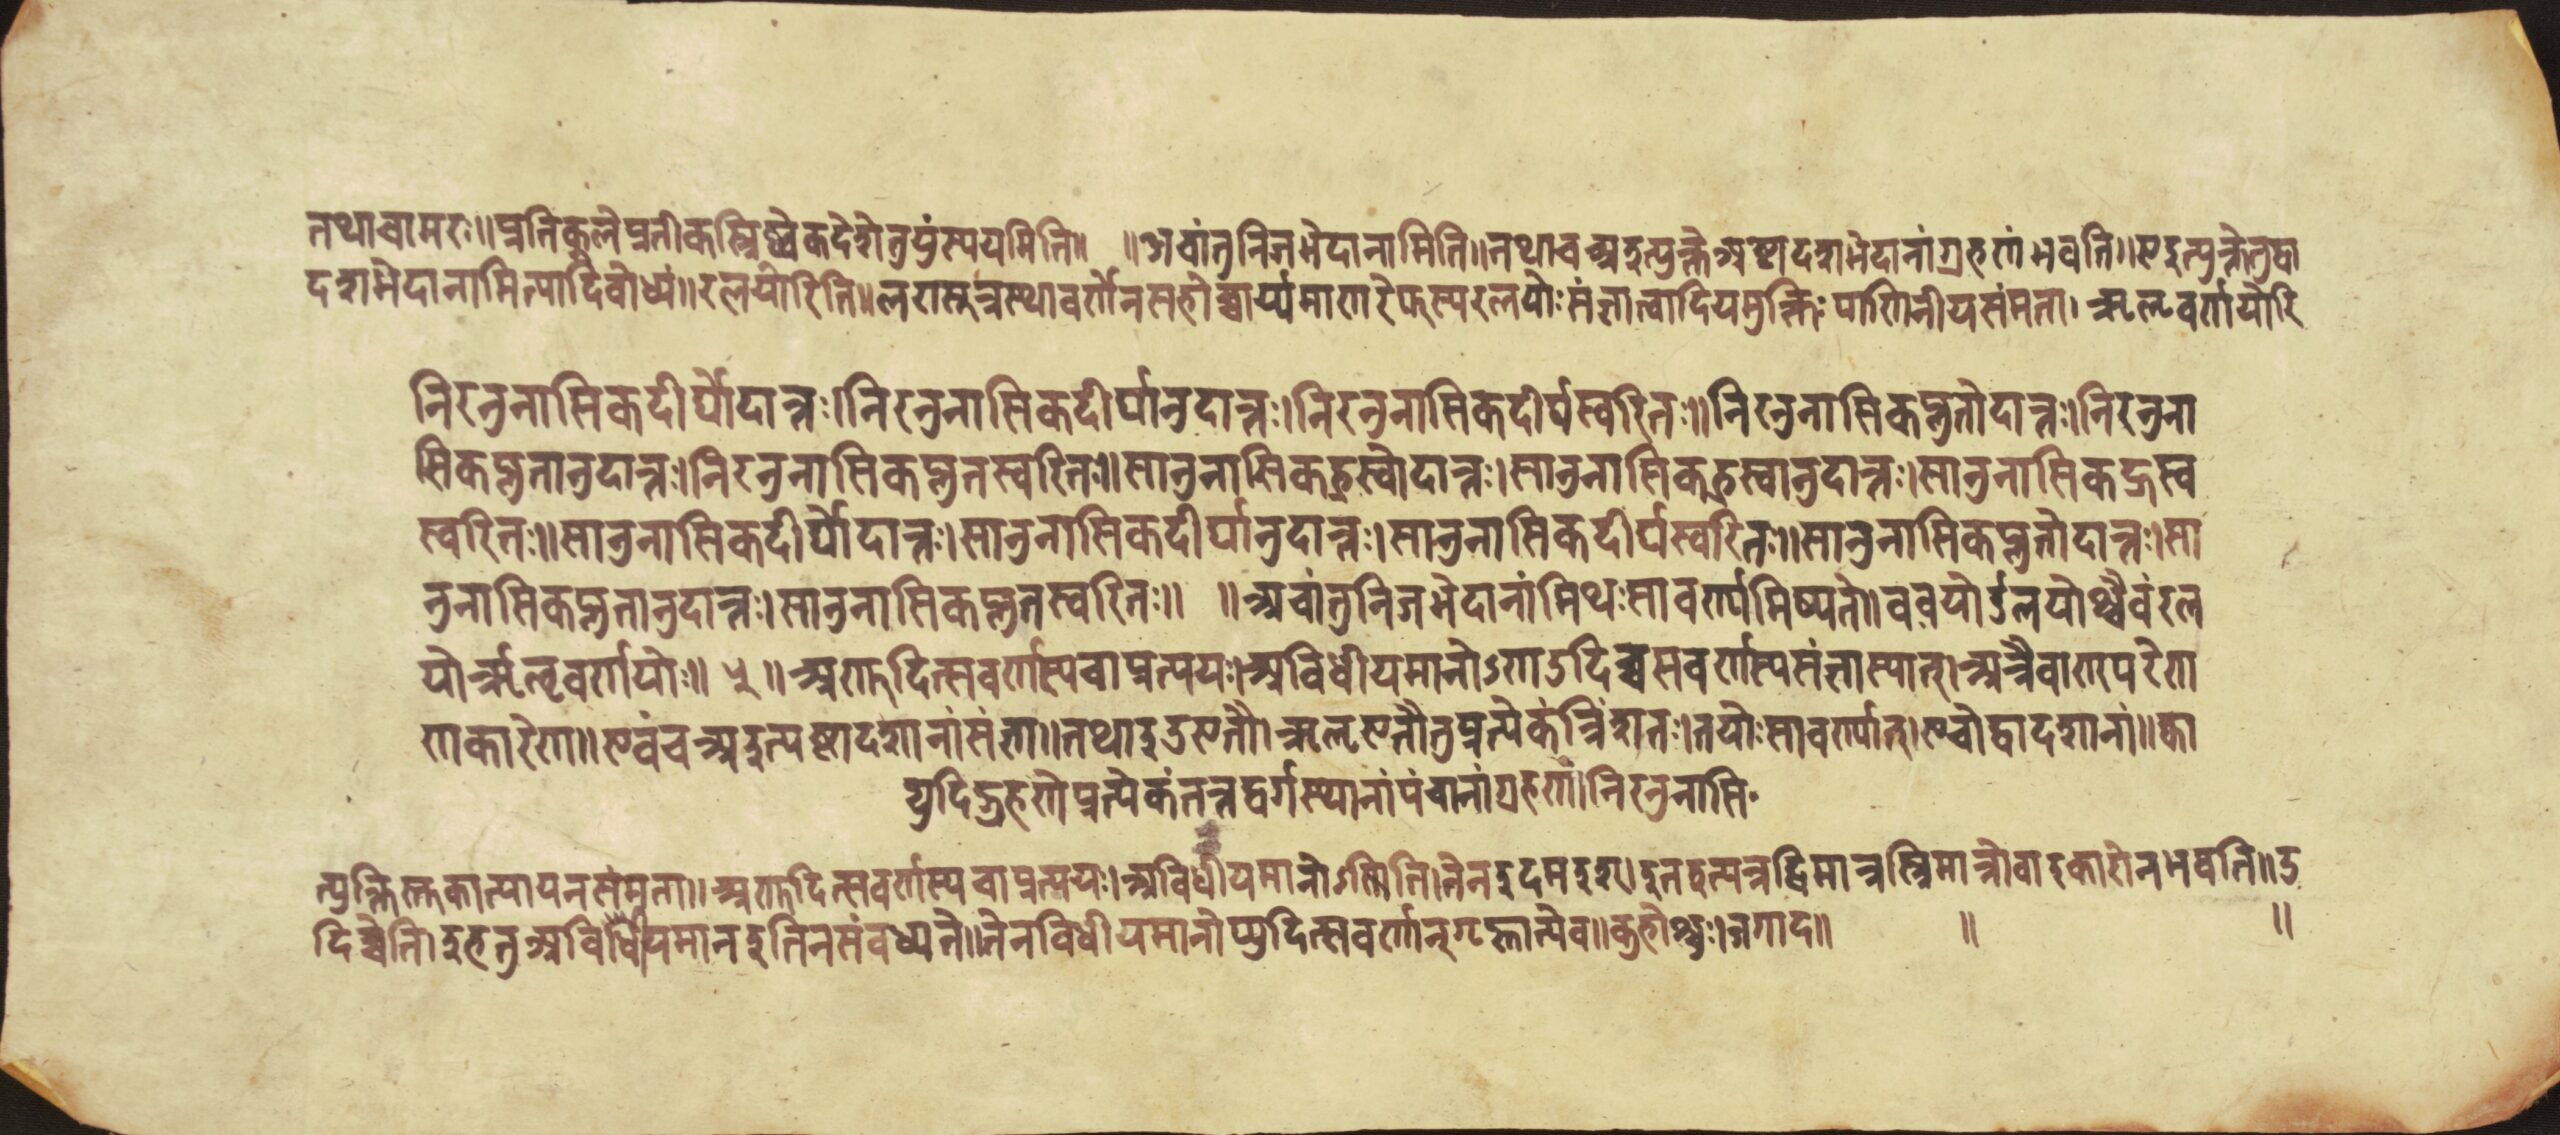 तथाचामरः॥प्रतिकूलेप्रतीकस्त्रिष्वेकदेशेतुपुंस्ययमिति॥ ॥अचांतुनिजभेदानामिति॥तथाचअइत्युक्तेअष्टादशभेदानांग्रहणंभवति॥एइत्युक्तेतुद्वा
दशभेदानामित्यादिबोध्यं॥रलयोरिति॥लणसूत्रस्थावर्णेनसहोच्चार्य्यमाणरेफस्यरलयोःसंज्ञात्वादियमुक्तिःपाणिनीयसंमता। ऋलृवर्णयोरि
निरनुनासिकदीर्घोदात्तः।निरनुनासिकदीर्घानुदात्तः।निरनुनासिकदीर्घस्वरितः॥निरनुनासिकप्लुतोदात्तः।निरनुना
सिकप्लुतानुदात्तः।निरनुनासिकप्लुतस्वरितः॥सानुनासिकह्रस्वोदात्तः।सानुनासिकह्रस्वानुदात्तः।सानुनासिकह्रस्व
स्वरितः॥सानुनासिकदीर्घोदात्तः।सानुनासिकदीर्घानुदात्तः।सानुनासिकदीर्घस्वरितः॥सानुनासिकप्लुतोदात्तः।सा
नुनासिकप्लुतानुदात्तः।सानुनासिकप्लुतस्वरितः॥ ॥अचांतुनिजभेदानांमिथःसावर्ण्यमिष्यते॥बवयोर्डलयोश्चैवंरल
योर्ऋलृवर्णयोः॥ ५ ॥अणुदित्सवर्णस्यचाप्रत्ययः।अविधीयमानोऽणाऽदिच्चसवर्णस्यसंज्ञास्यात्।अत्रैवाणपरेणा
णकारेण॥एवंचअइत्यष्टादशानांसंज्ञा॥तथाइउएतौ।ऋलृएतौतुप्रत्येकंत्रिंशतः।तयोःसावर्ण्यात्।एचोद्वादशानां॥का
द्युदिद्ग्रहणेप्रत्येकंतत्तद्वर्गस्थानांपंचानांग्रहणं।निरनुनासि
त्युक्तिस्तुकात्यायनसंमता॥अणुदित्सवर्णस्यचाप्रत्ययः।अविधीयमानोऽणिति।तेनइदमइश्।इतउत्पन्नद्विमात्रस्त्रिमात्रोवाइकारोनभवति॥उ
दिच्चेति।इहतुअविधीयमानइतिनसंबध्यते॥तेनविधीयमानोप्युदित्सवर्णान्गृह्णात्येव॥कुहोश्चुः।जगाद॥ ॥ ॥